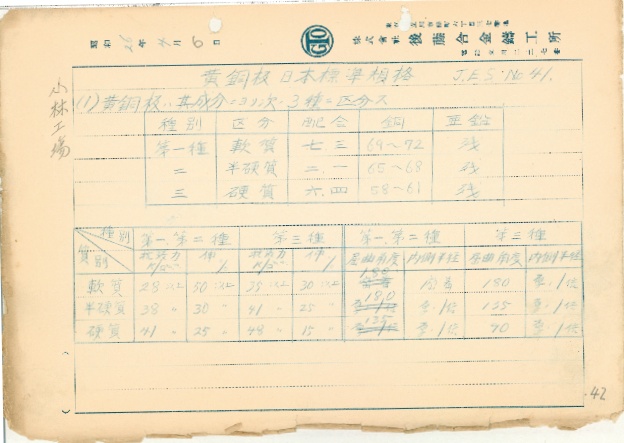 GTO
株式会社 後藤合金鋳工所
昭和 26 年 4 月 6 日
小林工場
黄銅板日本標準規格 J.E.S. No 41.
(1) 黄銅板ハ其成分ニヨリ次ノ3種ニ区分ス
種別 区分 配合 銅 亜鉛
第一種 軟質 七.三 69~72 残
二 半硬質 二.一 65~68 残
三 硬質 六.四 58~61 残
種別 第一、第二種 第三種 第一、第二種 第三種
質別 抗張力 伸 % 抗張力 伸 % 屈曲角度 内側半径 屈曲角度 内側半径
軟質 28 以上 50 以上 35 以上 30 以上 180 同着 180 厚ノ1倍
半硬質 38 〃 30 〃 41 〃 25 〃 180 厚ノ1倍 125 厚ノ1倍
硬質 41 〃 25 〃 48 〃 15 〃 125 厚ノ1倍 70 厚ノ1倍
.42